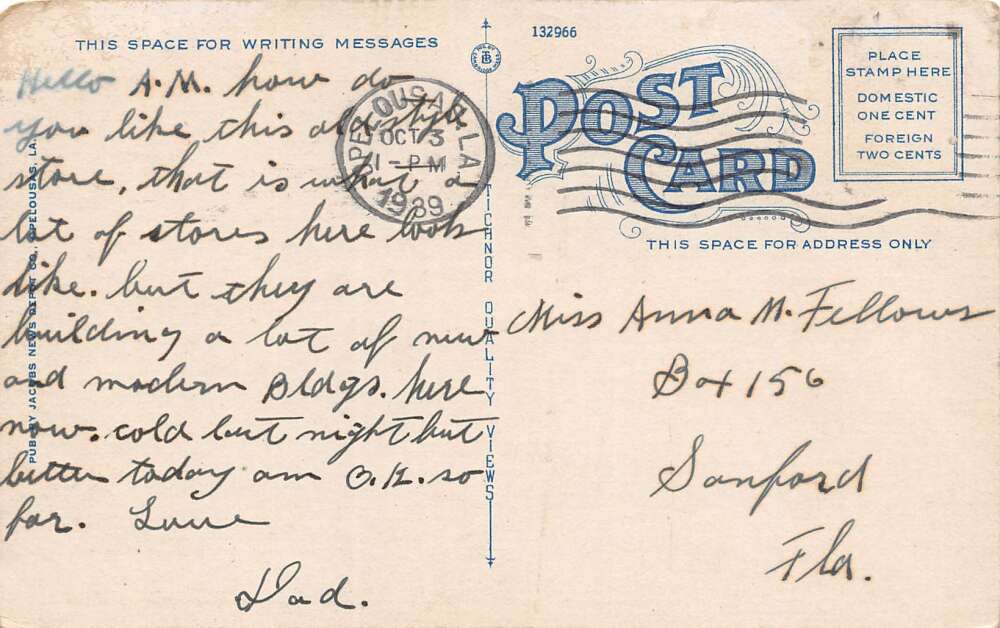 THIS SPACE FOR WRITING MESSAGES
Hello A.M. how do
you like this old style
store, that is what a
lot of stores here look
like. but they are
building a lot of new
and modern Bldgs. here
now. cold last night but
better today am O.K. so
far. Love
Dad.
PUB. BY JACOBS NEWS DEPOT CO., OPELOUSAS, LA.
OPELOUSAS, LA.
OCT 3
11 - PM
1939
TICHNOR QUALITY VIEWS
132966
POST CARD
PLACE
STAMP HERE
DOMESTIC
ONE CENT
FOREIGN
TWO CENTS
THIS SPACE FOR ADDRESS ONLY
Miss Anna M. Fellows
Box 156
Sanford
Fla.